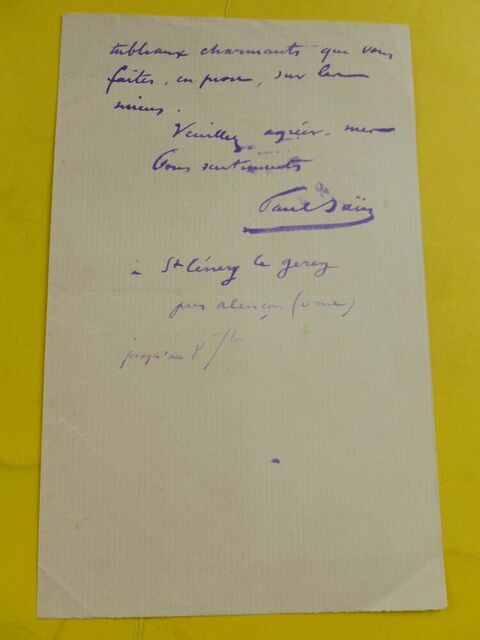 tableaux charmants que vous
faites, en prose, sur les
miens.
Veuillez agréer mes
bons sentiments
Paul Saïn
à St Cénery le gerey
près alençon (orne)
jusqu'au 8 7bre